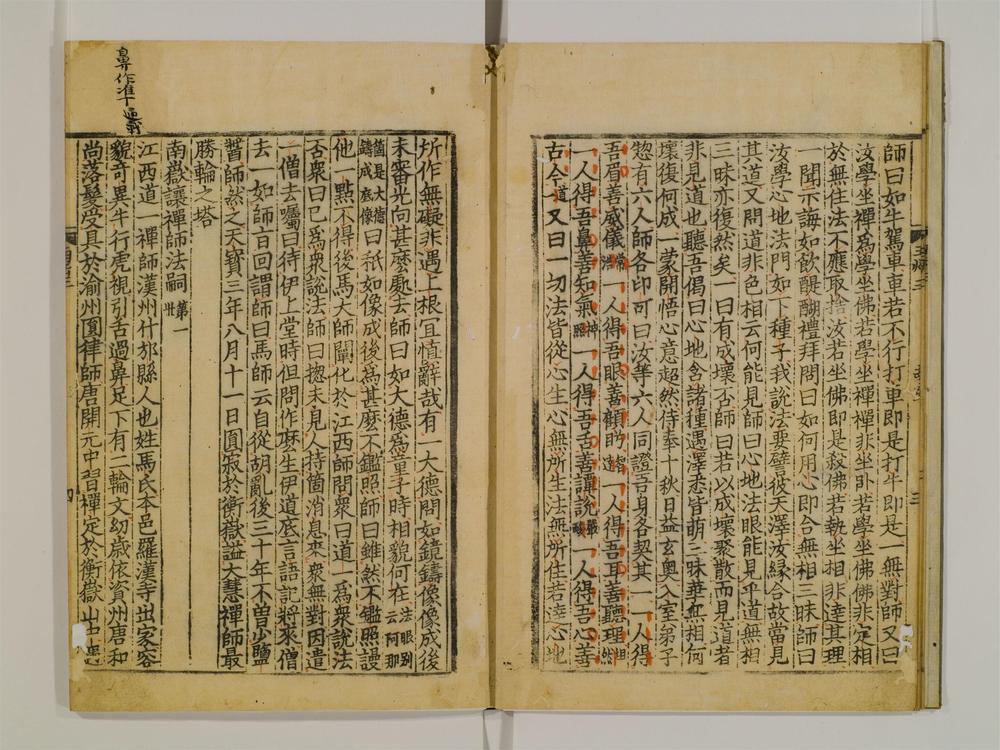 師曰如牛駕車車若不行打車即是打牛即是一無對師又曰
汝學坐禪爲學坐佛若學坐禪禪非坐卧若學坐佛佛非定相
於無住法不應取捨汝若坐佛即是殺佛若執坐相非達其理
一聞示誨如飲醍醐禮拜問曰如何用心即合無相三昧師曰
汝學心地法門如下種子我說法要譬彼天澤汝緣合故當見
其道又問道非色相云何能見師曰心地法眼能見乎道無相
三昧亦復然矣一曰有成壞否師曰若以成壞聚散而見道者
非見道也聽吾偈曰心地含諸種遇澤悉皆萌三昧華無相何
壞復何成一蒙開悟心意超然侍奉十秋日益玄奧入室弟子
惣有六人師各印可曰汝等六人同證吾身各契其一一人得
吾眉善威儀常浩一人得吾眼善顧眄智達一人得吾耳善聽理坦然
一人得吾鼻善知氣神照一人得吾舌善譚說嚴峻一人得吾心善
古今道一又曰一切法皆從心生心無所生法無所住若達心地
鼻作准
所作無礙非遇上根宜慎辭哉有一大德問如鏡鑄像像成後
未審光向甚麼處去師曰如大德爲童子時相貌何在法眼別云阿那
箇是大德鑄成底像曰秖如像成後爲甚麼不鑑照師曰雖然不鑑照謾
他一點不得後馬大師闡化於江西師問衆曰道一爲衆說法
否衆曰已爲衆說法師曰惣未見人持箇消息來衆無對因遣
一僧去囑曰待伊上堂時但問作麼生伊道底言語記將來僧
去一如師旨回謂師曰馬師云自從胡亂後三十年不曾少鹽
醬師然之天寶三年八月十一日圓寂於衡嶽謚大慧禪師最
勝輪之塔
南嶽讓禪師法嗣第一世
江西道一禪師漢州什邡縣人也姓馬氏本邑羅漢寺出家容
貌奇異牛行虎視引舌過鼻足下有二輪文幼歲依資州唐和
尚落髮受具於渝州圓律師唐開元中習禪定於衡嶽山中遇